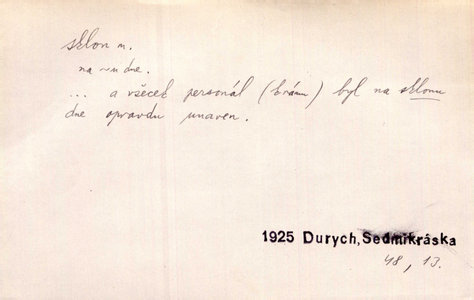 sklon m.
na ~ u dne.
... a všecek personál (krámu) byl na sklonu
dne opravdu unaven.
1925 Durych, Sedmikráska
48, 13.